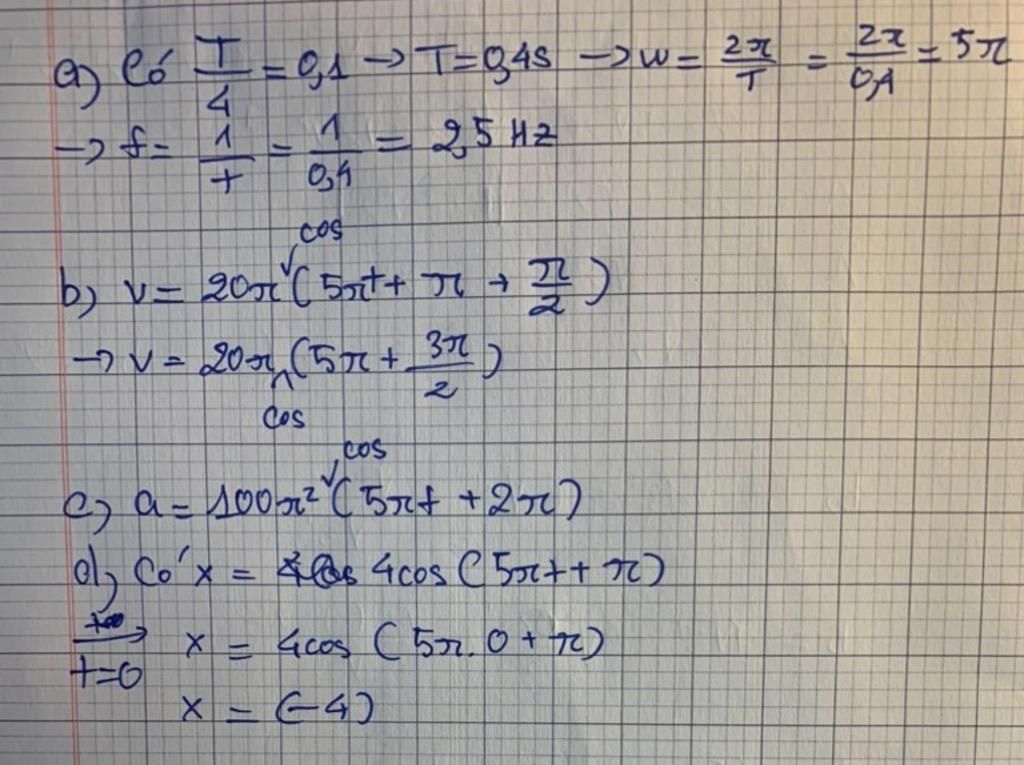 a) Có T/4 = 0,1 → T = 0,4s → w = 2π/T = 2π/0,4 = 5π
→ f = 1/T = 1/0,4 = 2,5 Hz
b) v = 20π cos (5πt + π + π/2)
→ v = 20π cos (5π + 3π/2)
c) a = 100π² cos (5πt + 2π)
d) Có x = 4cos (5πt + π)
t=0 → x = 4cos (5π. 0 + π)
x = (-4)